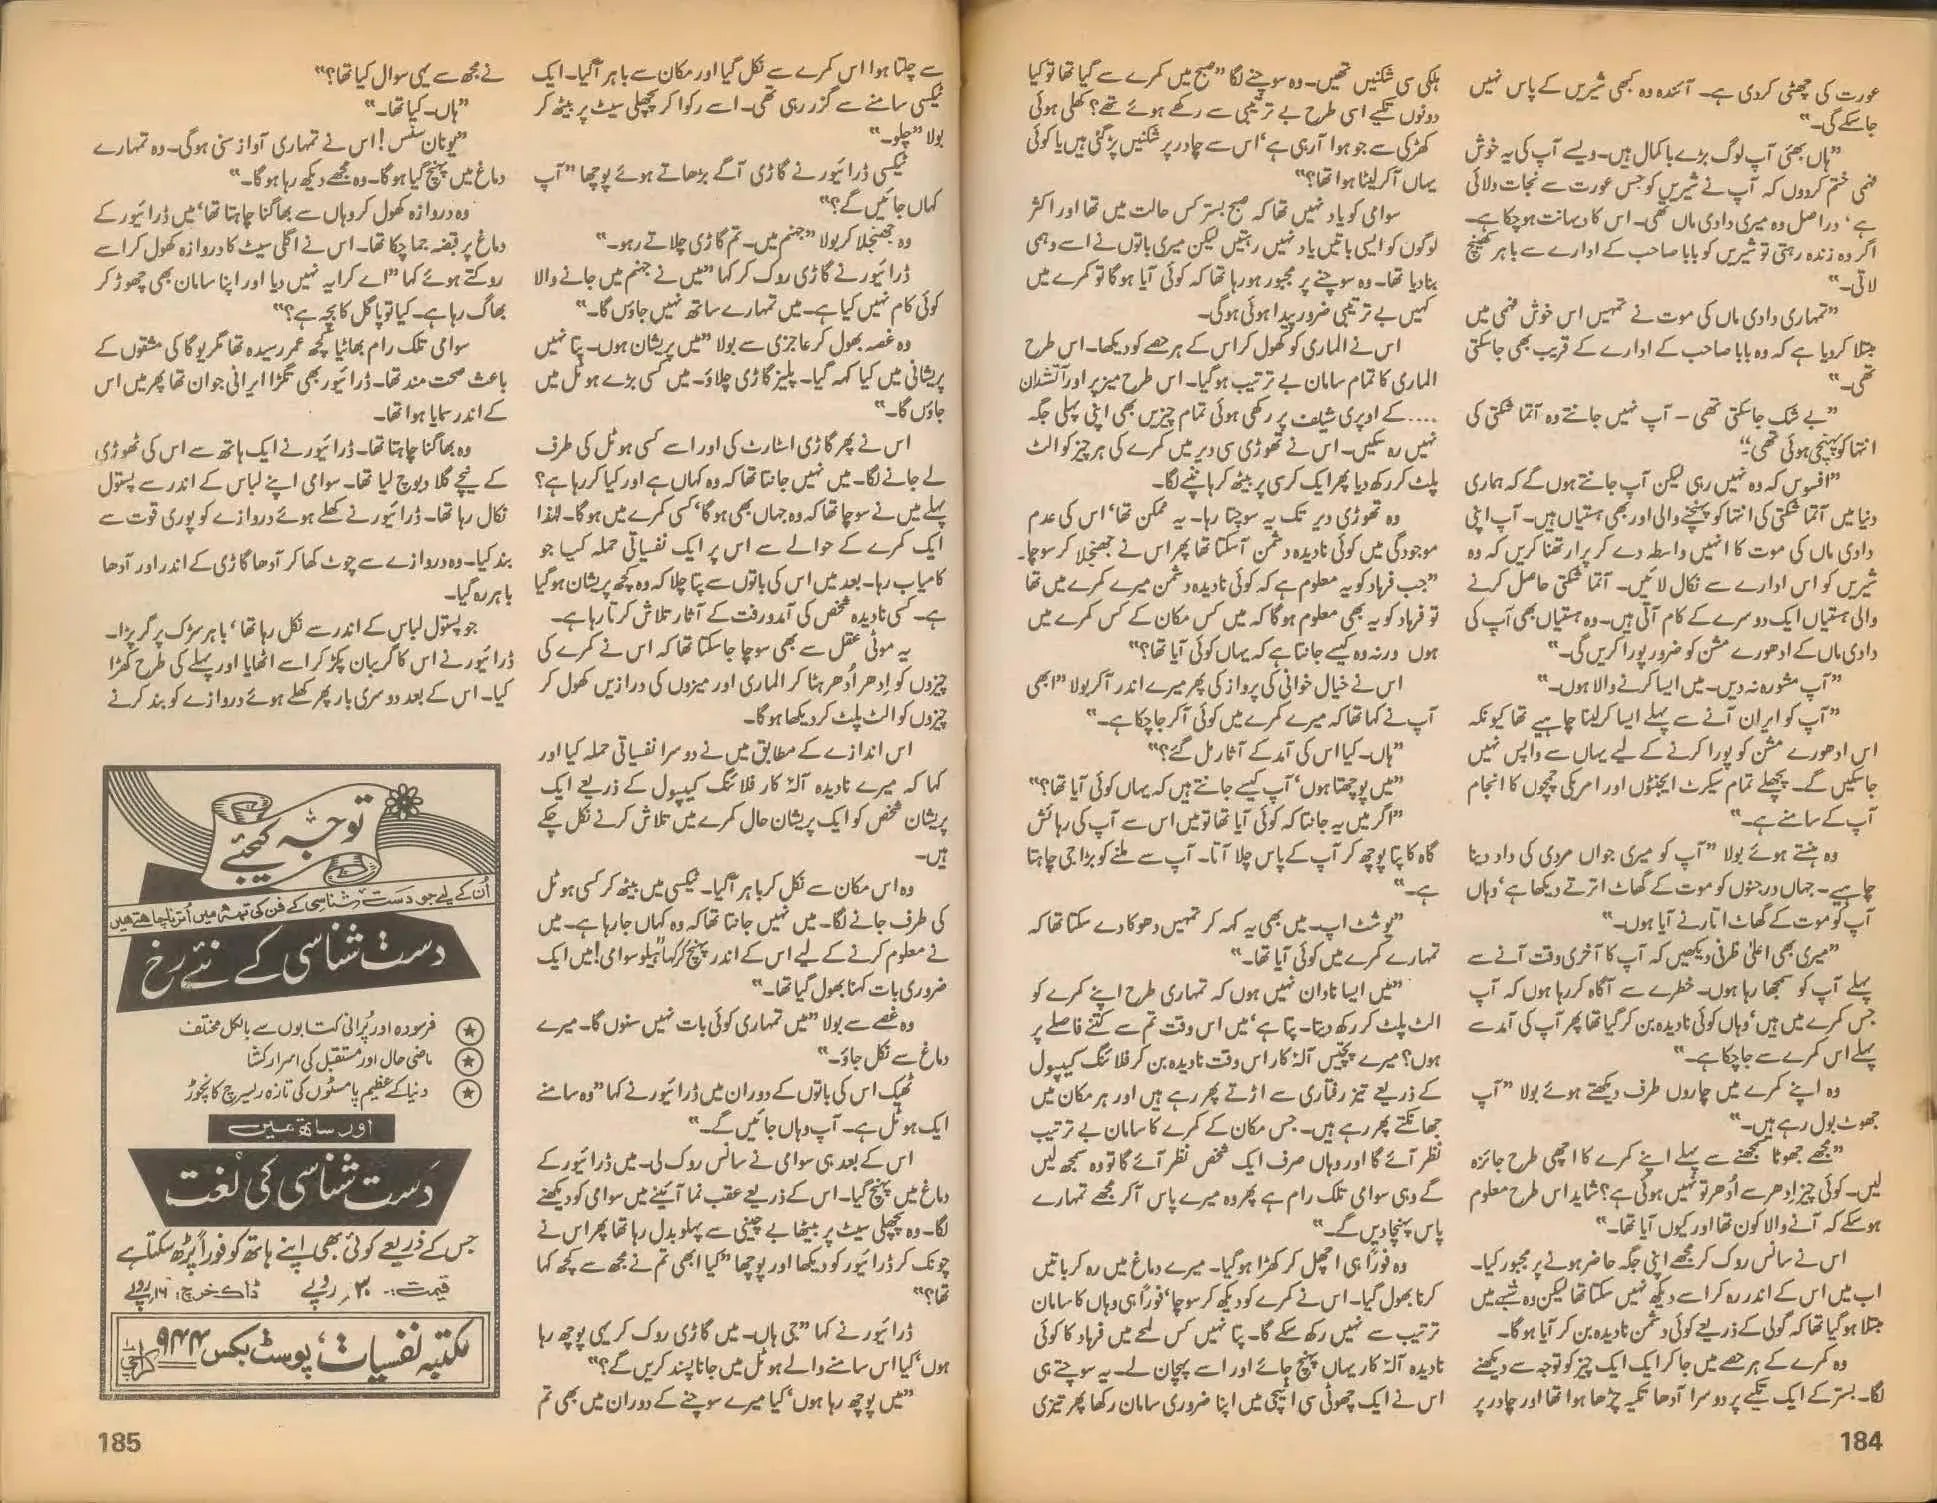 عورت کی چھٹی کردی ہے۔ آئندہ وہ کبھی شیریں کے پاس نہیں
جاسکے گی۔"
"ہاں بھئی آپ لوگ بڑے باکمال ہیں۔ ویسے آپ کی یہ خوش
فہمی ختم کردوں کہ آپ نے شیریں کو جس عورت سے نجات دلائی
ہے' دراصل وہ میری دادی ماں تھی۔ اس کا دیہانت ہوچکا ہے۔
اگر وہ زندہ رہتی تو شیریں کو بابا صاحب کے ادارے سے باہر کھینچ
لاتی۔"
"تمہاری دادی ماں کی موت نے تمہیں اس خوش فہمی میں
مبتلا کردیا ہے کہ وہ بابا صاحب کے ادارے کے قریب بھی جاسکتی
تھی۔"
"بے شک جاسکتی تھی – آپ نہیں جانتے وہ آتما شکتی کی
انتہا کو پہنچی ہوئی تھی"
"افسوس کہ وہ نہیں رہی لیکن آپ جانتے ہوں گے کہ ہماری
دنیا میں آتما شکتی کی انتہا کو پہنچنے والی اور بھی ہستیاں ہیں۔ آپ اپنی
دادی ماں کی موت کا انہیں واسطہ دے کر پرارتھنا کریں کہ وہ
شیریں کو اس ادارے سے نکال لائیں۔ آتما شکتی حاصل کرنے
والی ہستیاں ایک دوسرے کے کام آتی ہیں۔ وہ ہستیاں بھی آپ کی
دادی ماں کے ادھورے مشن کو ضرور پورا کریں گی۔"
"آپ مشورہ نہ دیں۔ میں ایسا کرنے والا ہوں۔"
"آپ کو ایران آنے سے پہلے ایسا کرلینا چاہیے تھا کیونکہ
اس ادھورے مشن کو پورا کرنے کے لیے یہاں سے واپس نہیں
جاسکیں گے۔ پچھلے تمام سیکرٹ ایجنٹوں اور امریکی چمچوں کا انجام
آپ کے سامنے ہے۔"
وہ ہنستے ہوئے بولا "آپ کو میری جواں مردی کی داد دینا
چاہیے۔ جہاں درجنوں کو موت کے گھاٹ اترتے دیکھا ہے' وہاں
آپ کو موت کے گھاٹ اتارنے آیا ہوں۔"
"میری بھی اعلیٰ ظرفی دیکھیں کہ آپ کا آخری وقت آنے سے
پہلے آپ کو سمجھا رہا ہوں۔ خطرے سے آگاہ کررہا ہوں کہ آپ
جس کمرے میں ہیں' وہاں کوئی نادیدہ بن کر گیا تھا پھر آپ کی آمد سے
پہلے اس کمرے سے جاچکا ہے۔"
وہ اپنے کمرے میں چاروں طرف دیکھتے ہوئے بولا "آپ
جھوٹ بول رہے ہیں۔"
"مجھے جھوٹا سمجھنے سے پہلے اپنے کمرے کا اچھی طرح جائزہ
لیں۔ کوئی چیز اِدھر سے اُدھر تو نہیں ہوئی ہے؟ شاید اس طرح معلوم
ہوسکے کہ آنے والا کون تھا اور کیوں آیا تھا۔"
اس نے سانس روک کر مجھے اپنی جگہ حاضر ہونے پر مجبور کیا۔
اب میں اس کے اندر رہ کر اسے دیکھ نہیں سکتا تھا لیکن وہ شبے میں
مبتلا ہوگیا تھا کہ گولی کے ذریعے کوئی دشمن نادیدہ بن کر آیا ہوگا۔
وہ کمرے کے ہر حصے میں جاکر ایک ایک چیز کو توجہ سے دیکھنے
لگا۔ بستر کے ایک تکیے پر دوسرا آدھا تکیہ چڑھا ہوا تھا اور چادر پر
ہلکی سی شکنیں تھیں۔ وہ سوچنے لگا "صبح میں کمرے سے گیا تھا تو کیا
دونوں تکیے اسی طرح بے ترتیبی سے رکھے ہوئے تھے؟ کھلی ہوئی
کھڑکی سے جو ہوا آرہی ہے' اس سے چادر پر شکنیں پڑگئی ہیں یا کوئی
یہاں آکر لیٹا ہوا تھا؟"
سوامی کو یاد نہیں تھا کہ صبح بستر کس حالت میں تھا اور اکثر
لوگوں کو ایسی باتیں یاد نہیں رہتیں لیکن میری باتوں نے اسے وہمی
بنادیا تھا۔ وہ سوچنے پر مجبور ہورہا تھا کہ کوئی آیا ہوگا تو کمرے میں
کہیں بے ترتیبی ضرور پیدا ہوئی ہوگی۔
اس نے الماری کو کھول کر اس کے ہر حصے کو دیکھا۔ اس طرح
الماری کا تمام سامان بے ترتیب ہوگیا۔ اس طرح میز پر اور آتشدان
.... کے اوپری شیلف پر رکھی ہوئی تمام چیزیں بھی اپنی پہلی جگہ
نہیں رہ سکیں۔ اس نے تھوڑی سی دیر میں کمرے کی ہر چیز کو الٹ
پلٹ کر رکھ دیا پھر ایک کرسی پر بیٹھ کر ہانپنے لگا۔
وہ تھوڑی دیر تک یہ سوچتا رہا۔ یہ ممکن تھا' اس کی عدم
موجودگی میں کوئی نادیدہ دشمن آسکتا تھا پھر اس نے جھنجلا کر سوچا۔
"جب فرہاد کو یہ معلوم ہے کہ کوئی نادیدہ دشمن میرے کمرے میں تھا
تو فرہاد کو یہ بھی معلوم ہوگا کہ میں کس مکان کے کس کمرے میں
ہوں ورنہ وہ کیسے جانتا ہے کہ یہاں کوئی آیا تھا؟"
اس نے خیال خوانی کی پرواز کی پھر میرے اندر آکر بولا "ابھی
آپ نے کہا تھا کہ میرے کمرے میں کوئی آکر جاچکا ہے۔"
"ہاں۔ کیا اس کی آمد کے آثار مل گئے؟"
"میں پوچھتا ہوں' آپ کیسے جانتے ہیں کہ یہاں کوئی آیا تھا؟"
"اگر میں یہ جانتا کہ کوئی آیا تھا تو میں اس سے آپ کی رہائش
گاہ کا پتا پوچھ کر آپ کے پاس چلا آتا۔ آپ سے ملنے کو بڑا جی چاہتا
ہے۔"
"یو شٹ اپ۔ میں بھی یہ کہہ کر تمہیں دھوکا دے سکتا تھا کہ
تمہارے کمرے میں کوئی آیا تھا۔"
"میں ایسا نادان نہیں ہوں کہ تمہاری طرح اپنے کمرے کو
الٹ پلٹ کر رکھ دیتا۔ پتا ہے' میں اس وقت تم سے کتنے فاصلے پر
ہوں؟ میرے پچیس آلۂ کار اس وقت نادیدہ بن کر فلائنگ کیپسول
کے ذریعے تیز رفتاری سے اڑتے پھر رہے ہیں اور ہر مکان میں
جھانکتے پھر رہے ہیں۔ جس مکان کے کمرے کا سامان بے ترتیب
نظر آئے گا اور وہاں صرف ایک شخص نظر آئے گا تو وہ سمجھ لیں
گے وہی سوامی تلک رام ہے پھر وہ میرے پاس آکر مجھے تمہارے
پاس پہنچا دیں گے۔"
وہ فوراً ہی اچھل کر کھڑا ہوگیا۔ میرے دماغ میں رہ کر باتیں
کرنا بھول گیا۔ اس نے کمرے کو دیکھ کر سوچا' فوراً ہی وہاں کا سامان
ترتیب سے نہیں رکھ سکے گا۔ پتا نہیں کس لمحے میں فرہاد کا کوئی
نادیدہ آلۂ کار یہاں پہنچ جائے اور اسے پہچان لے۔ یہ سوچتے ہی
اس نے ایک چھوٹی سی اٹیچی میں اپنا ضروری سامان رکھا پھر تیزی
184
سے چلتا ہوا اس کمرے سے نکل گیا اور مکان سے باہر آگیا۔ ایک
ٹیکسی سامنے سے گزر رہی تھی۔ اسے رکوا کر پچھلی سیٹ پر بیٹھ کر
بولا "چلو۔"
ٹیکسی ڈرائیور نے گاڑی آگے بڑھاتے ہوئے پوچھا "آپ
کہاں جائیں گے؟"
وہ جھنجلا کر بولا "جہنم میں۔ تم گاڑی چلاتے رہو۔"
ڈرائیور نے گاڑی روک کر کہا "میں نے جہنم میں جانے والا
کوئی کام نہیں کیا ہے۔ میں تمہارے ساتھ نہیں جاؤں گا۔"
وہ غصہ بھول کر عاجزی سے بولا "میں پریشان ہوں۔ پتا نہیں
پریشانی میں کیا کہہ گیا۔ پلیز گاڑی چلاؤ۔ میں کسی بڑے ہوٹل میں
جاؤں گا۔"
اس نے پھر گاڑی اسٹارٹ کی اور اسے کسی ہوٹل کی طرف
لے جانے لگا۔ میں نہیں جانتا تھا کہ وہ کہاں ہے اور کیا کررہا ہے؟
پہلے میں نے سوچا تھا کہ وہ جہاں بھی ہوگا' کسی کمرے میں ہوگا۔ لہٰذا
ایک کمرے کے حوالے سے اس پر ایک نفسیاتی حملہ کیا جو
کامیاب رہا۔ بعد میں اس کی باتوں سے پتا چلا کہ وہ کچھ پریشان ہوگیا
ہے۔ کسی نادیدہ شخص کی آمد و رفت کے آثار تلاش کرتا رہا ہے۔
یہ موٹی عقل سے بھی سوچا جاسکتا تھا کہ اس نے کمرے کی
چیزوں کو اِدھر اُدھر ہٹا کر الماری اور میزوں کی درازیں کھول کر
چیزوں کو الٹ پلٹ کر دیکھا ہوگا۔
اس اندازے کے مطابق میں نے دوسرا نفسیاتی حملہ کیا اور
کہا کہ میرے نادیدہ آلۂ کار فلائنگ کیپسول کے ذریعے ایک
پریشان شخص کو ایک پریشان حال کمرے میں تلاش کرنے نکل چکے
ہیں۔
وہ اس مکان سے نکل کر باہر آگیا۔ ٹیکسی میں بیٹھ کر کسی ہوٹل
کی طرف جانے لگا۔ میں نہیں جانتا تھا کہ وہ کہاں جارہا ہے۔ میں
نے معلوم کرنے کے لیے اس کے اندر پہنچ کر کہا "ہیلو سوامی! میں ایک
ضروری بات کہنا بھول گیا تھا۔"
وہ غصے سے بولا "میں تمہاری کوئی بات نہیں سنوں گا۔ میرے
دماغ سے نکل جاؤ۔"
ٹھیک اس کی باتوں کے دوران میں ڈرائیور نے کہا "وہ سامنے
ایک ہوٹل ہے۔ آپ وہاں جائیں گے۔"
اس کے بعد ہی سوامی نے سانس روک لی۔ میں ڈرائیور کے
دماغ میں پہنچ گیا۔ اس کے ذریعے عقب نما آئینے میں سوامی کو دیکھنے
لگا۔ وہ پچھلی سیٹ پر بیٹھا بے چینی سے پہلو بدل رہا تھا پھر اس نے
چونک کر ڈرائیور کو دیکھا اور پوچھا "کیا ابھی تم نے مجھ سے کچھ کہا
تھا؟"
ڈرائیور نے کہا "جی ہاں۔ میں گاڑی روک کر یہی پوچھ رہا
ہوں' کیا اس سامنے والے ہوٹل میں جانا پسند کریں گے؟"
"میں پوچھ رہا ہوں' کیا میرے سوچنے کے دوران میں بھی تم
نے مجھ سے یہی سوال کیا تھا؟"
"ہاں۔ کیا تھا۔"
"یو نان سنس! اس نے تمہاری آواز سنی ہوگی۔ وہ تمہارے
دماغ میں پہنچ گیا ہوگا۔ وہ مجھے دیکھ رہا ہوگا۔"
وہ دروازہ کھول کر وہاں سے بھاگنا چاہتا تھا' میں ڈرائیور کے
دماغ پر قبضہ جما چکا تھا۔ اس نے اگلی سیٹ کا دروازہ کھول کر اسے
روکتے ہوئے کہا "اے کرایہ نہیں دیا اور اپنا سامان بھی چھوڑ کر
بھاگ رہا ہے۔ کیا تو پاگل کا بچہ ہے؟"
سوامی تلک رام بھاٹیا کچھ عمر رسیدہ تھا مگر یوگا کی مشقوں کے
باعث صحت مند تھا۔ ڈرائیور بھی تگڑا ایرانی جوان تھا پھر میں اس
کے اندر سمایا ہوا تھا۔
وہ بھاگنا چاہتا تھا۔ ڈرائیور نے ایک ہاتھ سے اس کی ٹھوڑی
کے نیچے گلا دبوچ لیا تھا۔ سوامی اپنے لباس کے اندر سے پستول
نکال رہا تھا۔ ڈرائیور نے کھلے ہوئے دروازے کو پوری قوت سے
بند کیا۔ وہ دروازے سے چوٹ کھا کر آدھا گاڑی کے اندر اور آدھا
باہر رہ گیا۔
جو پستول لباس کے اندر سے نکل رہا تھا' باہر سڑک پر گر پڑا۔
ڈرائیور نے اس کا گریبان پکڑ کر اسے اٹھایا اور پہلے کی طرح کھڑا
کیا۔ اس کے بعد دوسری بار پھر کھلے ہوئے دروازے کو بند کرنے
توجہ کیجئے
اُن کے لیے جو دست شناسی کے فن کی تہہ میں اُترنا چاہتے ہیں
دست شناسی کے نئے رخ
فرسودہ اور پُرانی کتابوں سے بالکل مختلف
ماضی حال اور مستقبل کی اسرار کشا
دنیا کے عظیم پامسٹوں کی تازہ ریسرچ کا نچوڑ
اور ساتھ میں
دست شناسی کی لُغت
جس کے ذریعے کوئی بھی اپنے ہاتھ کو فوراً پڑھ سکتا ہے
قیمت:۔ ۳۰ روپے ڈاک خرچ: ۱۶ روپے
مکتبہ نفسیات، پوسٹ بکس ۹۴۴ کراچی
185